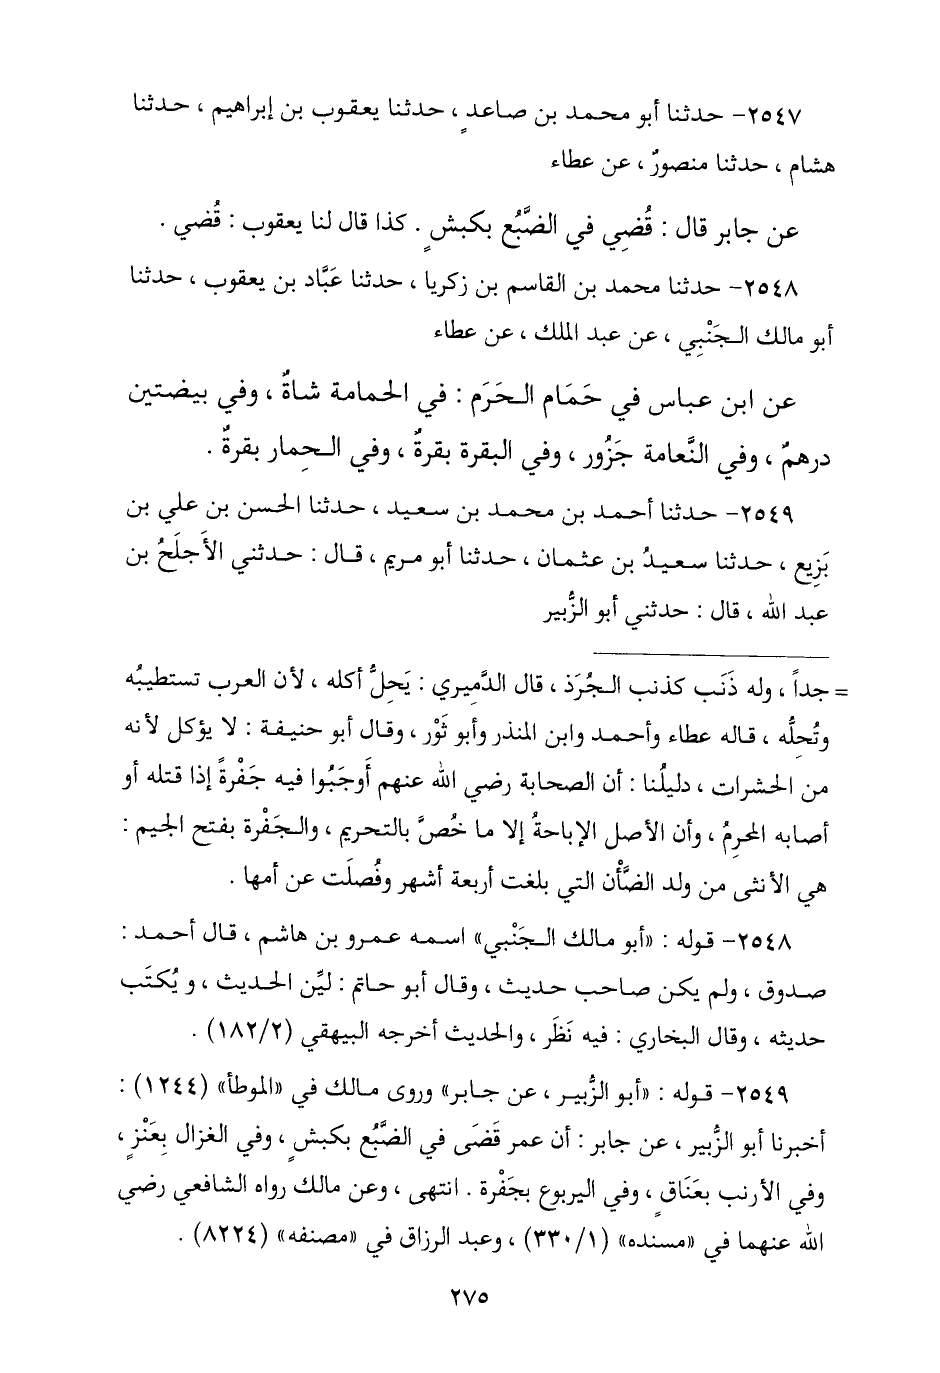 ٢٥٤٧- حدثنا أبو محمد بن صاعدٍ ، حدثنا يعقوب بن إبراهيم ، حدثنا
هشام ، حدثنا منصورٌ ، عن عطاء
عن جابر قال : قُضِي في الضَّبُع بكبشٍ . كذا قال لنا يعقوب : قُضي .
٢٥٤٨- حدثنا محمد بن القاسم بن زكريا ، حدثنا عَبَّاد بن يعقوب ، حدثنا
أبو مالك الجَنْبِي ، عن عبد الملك ، عن عطاء
عن ابن عباس في حَمَام الحَرَم : في الحمامة شاةٌ ، وفي بيضتين
درهمٌ ، وفي النَّعامة جَزُور ، وفي البقرة بقرةٌ ، وفي الحِمار بقرةٌ .
٢٥٤٩- حدثنا أحمد بن محمد بن سعيد ، حدثنا الحسن بن علي بن
بَزِيع ، حدثنا سعيدُ بن عثمان ، حدثنا أبو مريم ، قال : حدثني الأَجلَحُ بن
عبد الله ، قال : حدثني أبو الزُّبير
= جداً ، وله ذَنَب كذنب الجُرَذ ، قال الدَّمِيري : يَحِلُّ أكله ، لأن العرب تستطيبُه
وتُحِلُّه ، قاله عطاء وأحمد وابن المنذر وأبو ثَوْر ، وقال أبو حنيفة : لا يؤكل لأنه
من الحشرات ، دليلُنا : أن الصحابة رضي الله عنهم أَوجَبُوا فيه جَفْرةً إذا قتله أو
أصابه المحرِمُ ، وأن الأصل الإباحةُ إلا ما خُصَّ بالتحريم ، والجَفْرة بفتح الجيم :
هي الأنثى من ولد الضَّأْن التي بلغت أربعة أشهر وفُصلَت عن أمها .
٢٥٤٨- قوله : «أبو مالك الجَنْبي» اسمه عمرو بن هاشم ، قال أحمد :
صدوق ، ولم يكن صاحب حديث ، وقال أبو حاتم : ليِّن الحديث ، و يُكتَب
حديثه ، وقال البخاري : فيه نَظَر ، والحديث أخرجه البيهقي (١٨٢/٢) .
٢٥٤٩- قوله : «أبو الزُّبير ، عن جابر» وروى مالك في «الموطأ» (١٢٤٤) :
أخبرنا أبو الزُّبير ، عن جابر : أن عمر قَضَى في الضَّبُع بكبشٍ ، وفي الغزال بِعَنْزٍ ،
وفي الأرنب بعَنَاقٍ ، وفي اليربوع بجَفْرة . انتهى ، وعن مالك رواه الشافعي رضي
الله عنهما في «مسنده» (٣٣٠/١) ، وعبد الرزاق في «مصنفه» (٨٢٢٤) .
٢٧٥